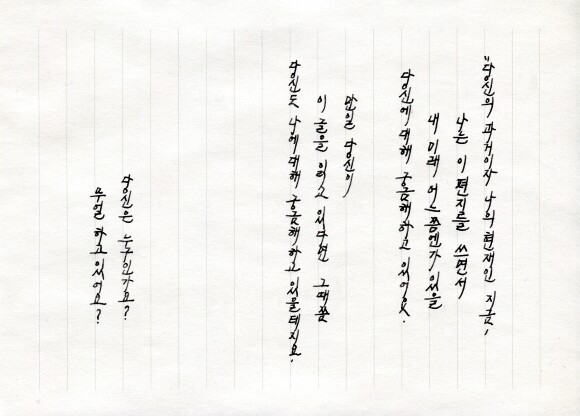 "당신의 과거이자 나의 현재인 지금,
나는 이 편지를 쓰면서
내 미래 어느쯤엔가 있을
당신에 대해 궁금해하고 있어요.
만일 당신이
이 글을 읽고 있다면 그때쯤
당신도 나에 대해 궁금해하고 있을테지요.
당신은 누구인가요?
무얼 하고 있어요?